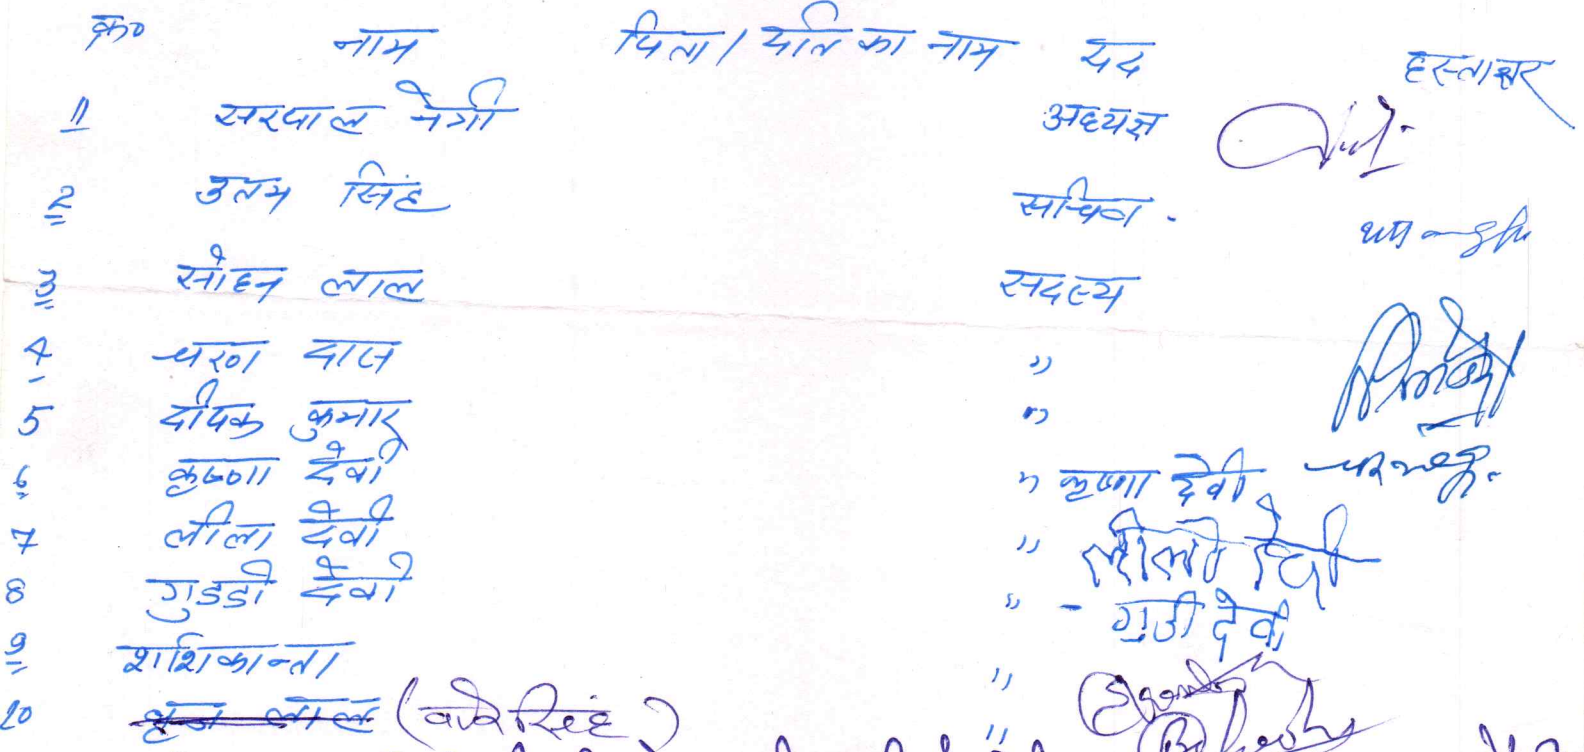 क्र० नाम पिता / पति का नाम पद हस्ताक्षर
1 सरपाल नेगी अध्यक्ष
2 उतम सिंह सचिव .
3 सोहन लाल सदस्य
4 चरण दास "
5 दीपक कुमार "
6 कृष्णा देवी " कृष्णा देवी
7 लीला देवी " लीला देवी
8 गुडडी देवी " - गुडी देवी
9 शशिकान्ता "
10 लाल "